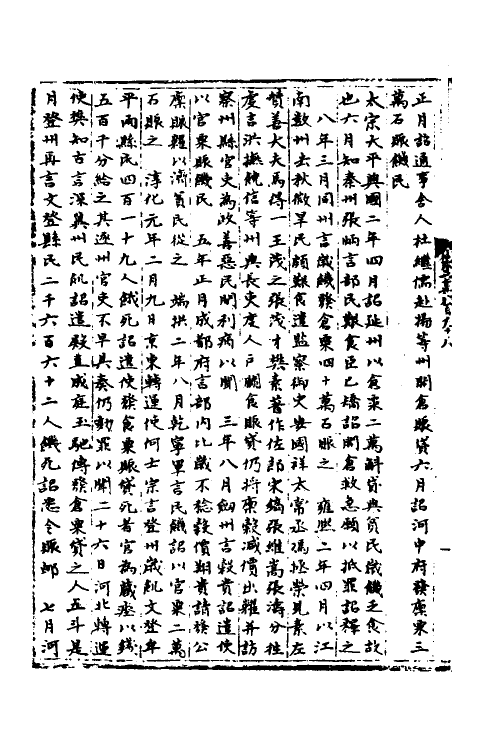 正月詔通事舍人杜繼儒赴揚等州開倉賑貸六月詔河中府發廩粟三
萬石賑饑民
太宗太平興國二年四月詔延州以倉粟二萬斛貸與貧民歲饑乏食故
也六月知秦州張炳言部民艱食臣已矯詔開倉救急願以抵罪詔釋之
八年三月同州言歲饑發倉粟四十萬石賑之　雍熙二年四月以江
南數州去秋微旱民頗艱食遣監察御史安國祥太常丞馮拯榮見素左
贊善大夫馬得一王茂之張茂才樊素著作佐郎宋鎬張維嵩張濤分往
虔吉洪撫饒信等州與長吏度人戶闕食賑貸仍將廩穀減價出糶并訪
察州縣官吏為政善惡民間利病以聞　三年八月劍州言穀貴詔遣使
以官粟賑饑民　五年正月成都府言部內比歲不稔穀價翔貴請發公
廩賑糶以濟貧民從之　端拱二年八月乾寧軍言民饑詔以官粟二萬
石賑之　淳化元年二月九日京東轉運使何士宗言登州歲飢文登牟
平兩縣民四百一十九人餓死詔遣使發倉粟賑貸死者官為藏瘞以錢
五百千分給之其逐州官吏不早具奏仍劾罪以聞二十六日河北轉運
使樊知古言深冀州民飢詔遣殿直成庭玉馳傳發倉粟貸之人五斗是
月登州再言文登縣民二千六百六十二人饑死詔悉令賑卹　七月河